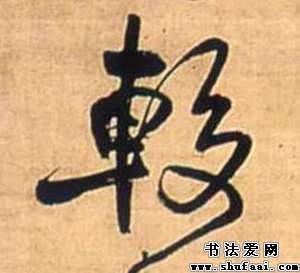 較
书法爱网
www.shufaai.com